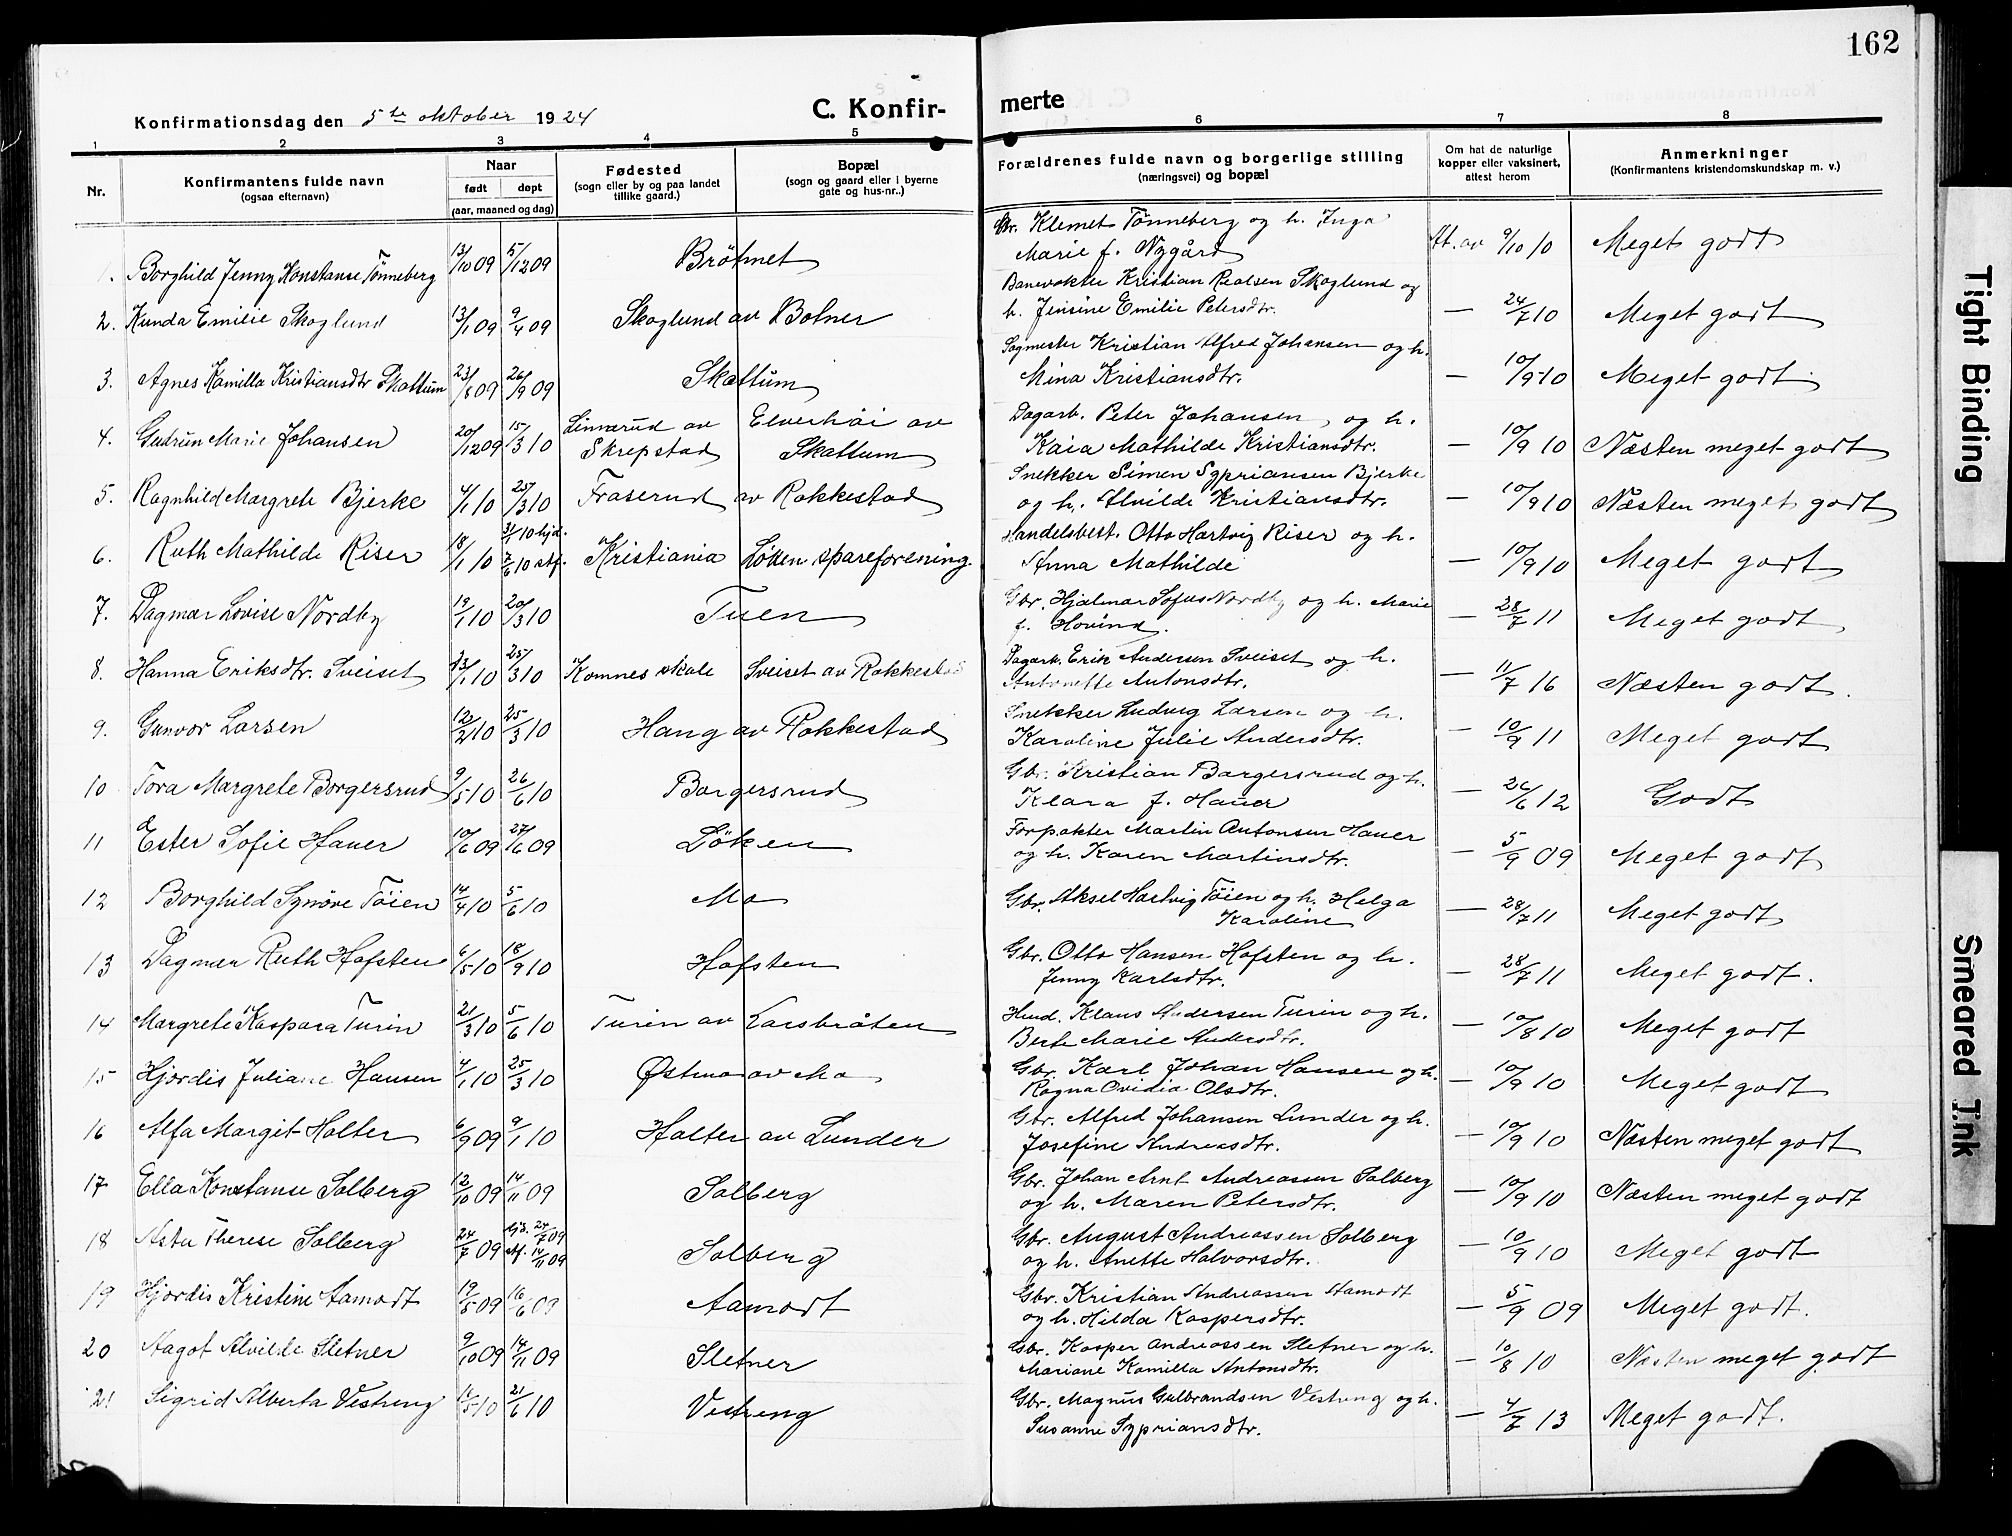 162
Konfirmationsdag den 5te oktober 1924
C. Konfir-
merte
1 2 3 4 5 6 7 8
Nr.
Konfirmantens fulde navn
(ogsaa efternavn)
Naar
født døpt
(aar, maaned og dag)
Fødested
(sogn eller by og paa landet
tillike gaard.)
Bopæl
(sogn og gaard eller i byerne
gate og hus-nr..)
Forældrenes fulde navn og borgerlige stilling
(næringsvei) og bopæl
Om hat de naturlige
kopper eller vaksinert,
attest herom
Anmerkninger
(Konfirmantens kristendomskundskap m. v.)
1. Borghild Jenny Konstanse Tønneberg 13/10 09 5/12 09 Brötmet Gbr. Klemet Tønneberg og h. Inga
Marie f. Nygård At. av 9/10 10 Meget godt
2. Kunda Emilie Skoglund 13/1 09 9/4 09 Skoglund av Bolner Banevokter Kristian Skoglund og
h. Jensine Emilie Petersdtr. — 24/7 10 Meget godt
3. Agnes Kamilla Kristiansdtr Skattum 23/8 09 26/9 09 Skattum Sagmester Kristian Alfred Johansen og h.
Mina Kristiansdtr. — 10/9 10 Meget godt
4. Gudrun Marie Johansen 20/12 09 15/3 10 Linnerud av Skrepstad Elverhøi av Skattum Dagarb. Peter Johansen og h.
Kaia Mathilde Kristiansdtr. — 10/9 10 Næsten meget godt
5. Ragnhild Margrete Bjerke 4/1 10 25/3 10 Fraserud av Rakkestad Snekker Simen Sypriansen Bjerke
og h. Alvilde Kristiansdtr. — 10/9 10 Næsten meget godt
6. Ruth Mathilde Riser 18/1 10 31/1 10 hjd. 7/6 10 stf. Kristiania Løken spareforening Handelsbest. Otto Hartvig Riser og h.
Anna Mathilde — 10/9 10 Meget godt
7. Dagmar Lovise Nordby 19/1 10 20/3 10 Tuen Gbr. Hjalmar Sofus Nordby og h. Marie
f. Hovind. — 28/7 11 Meget godt
8. Hanna Eriksdtr. Sveiset 23/1 10 25/3 10 Komnes skole Sveiset av Rakkestad Dagarb. Erik Andersen Sveiset og h.
Antonette Antonsdtr. — 11/7 16 Næsten godt.
9. Gunvor Larsen 12/2 10 25/3 10 Haug av Rakkestad Snekker Ludvig Larsen og h.
Karoline Julie Andersdtr. — 10/9 11 Meget godt
10 Tora Margrete Borgersrud 9/5 10 26/6 10 Borgersrud Gbr. Kristian Borgersrud og h.
Klara f. Hauer — 26/6 12 Godt
11 Ester Sofie Hauer 10/6 09 27/6 09 Löken Forpakter Martin Antonsen Hauer
og h. Karen Martinsdtr. — 5/9 09 Meget godt
12 Borghild Synöve Töien 14/4 10 5/6 10 Mo Gbr. Aksel Hartvig Töien og h. Helga
Karoline — 28/7 11 Meget godt
13 Dagmar Ruth Hofsten 6/5 10 18/9 10 Hofsten Gbr. Otto Hansen Hofsten og h.
Jenny Karlsdtr. — 28/7 11 Meget godt.
14 Margrete Kaspara Turin 21/3 10 5/6 10 Turin av Larsbråten Husd. Klaus Andersen Turin og h.
Berte Marie Andersdtr. — 10/8 10 Meget godt
15 Hjørdis Juliane Hansen 4/1 10 25/3 10 Østmo av Mo Gbr. Karl Johan Hansen og h.
Ragna Ovidia Olsdtr. — 10/9 10 Meget godt
16 Alfa Margit Holter 6/9 09 9/1 10 Holter av Lunder Gbr. Alfred Johansen Lunder og h.
Josefine Andreasdtr. — 10/9 10 Næsten meget godt
17 Ella Konstanse Solberg 12/10 09 14/11 09 Solberg Gbr. Johan Arnt Andreassen Solberg
og h. Maren Petersdtr. — 10/9 10 Næsten meget godt
18 Asta Therese Solberg 24/7 09 hjd. 24/7 09 stf. 14/11 09 Solberg Gbr. August Andreassen Solberg
og h. Anette Halvorsdtr. — 10/9 10 Meget godt
19 Hjördis Kristine Aamodt 19/5 09 16/6 09 Aamodt Gbr. Kristian Andreassen Aamodt
og h. Hilda Kaspersdtr. — 5/9 09 Meget godt.
20 Aagot Alvilde Sletner 9/10 09 14/11 09 Sletner Gbr. Kasper Andreassen Sletner og h.
Mariane Kamilla Antonsdtr. — 10/8 10 Næsten meget godt
21 Sigrid Alberta Vestreng 14/5 10 21/6 10 Vestreng Gbr. Magnus Gulbrandsen Vestreng og h.
Susanne Sypriansdtr. — 4/7 13 Meget godt.
Tight Binding
Smeared Ink